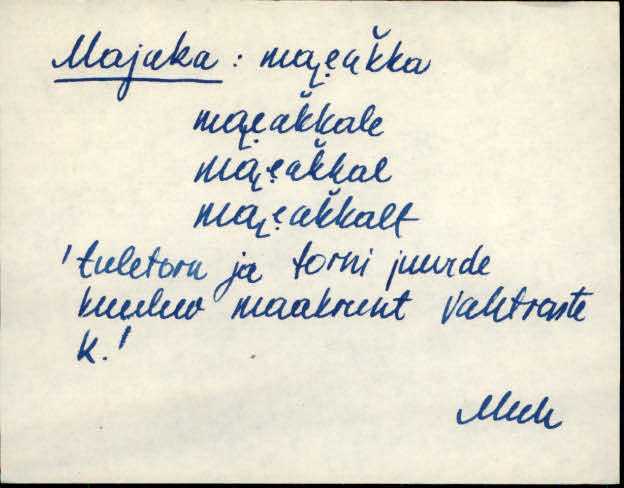 Majaka : mai̯e̮ak̆ka
mai̯e̮ak̆kale
mai̯e̮ak̆kal
mai̯e̮ak̆kalt
'tuletorn ja torni juurde
kuuluv maakrunt Vahtraste
k.'
Muh